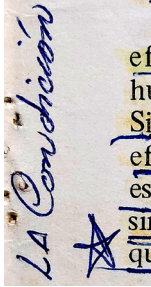 LA Condición
ef
hu
Si
ef
es
sin
qu